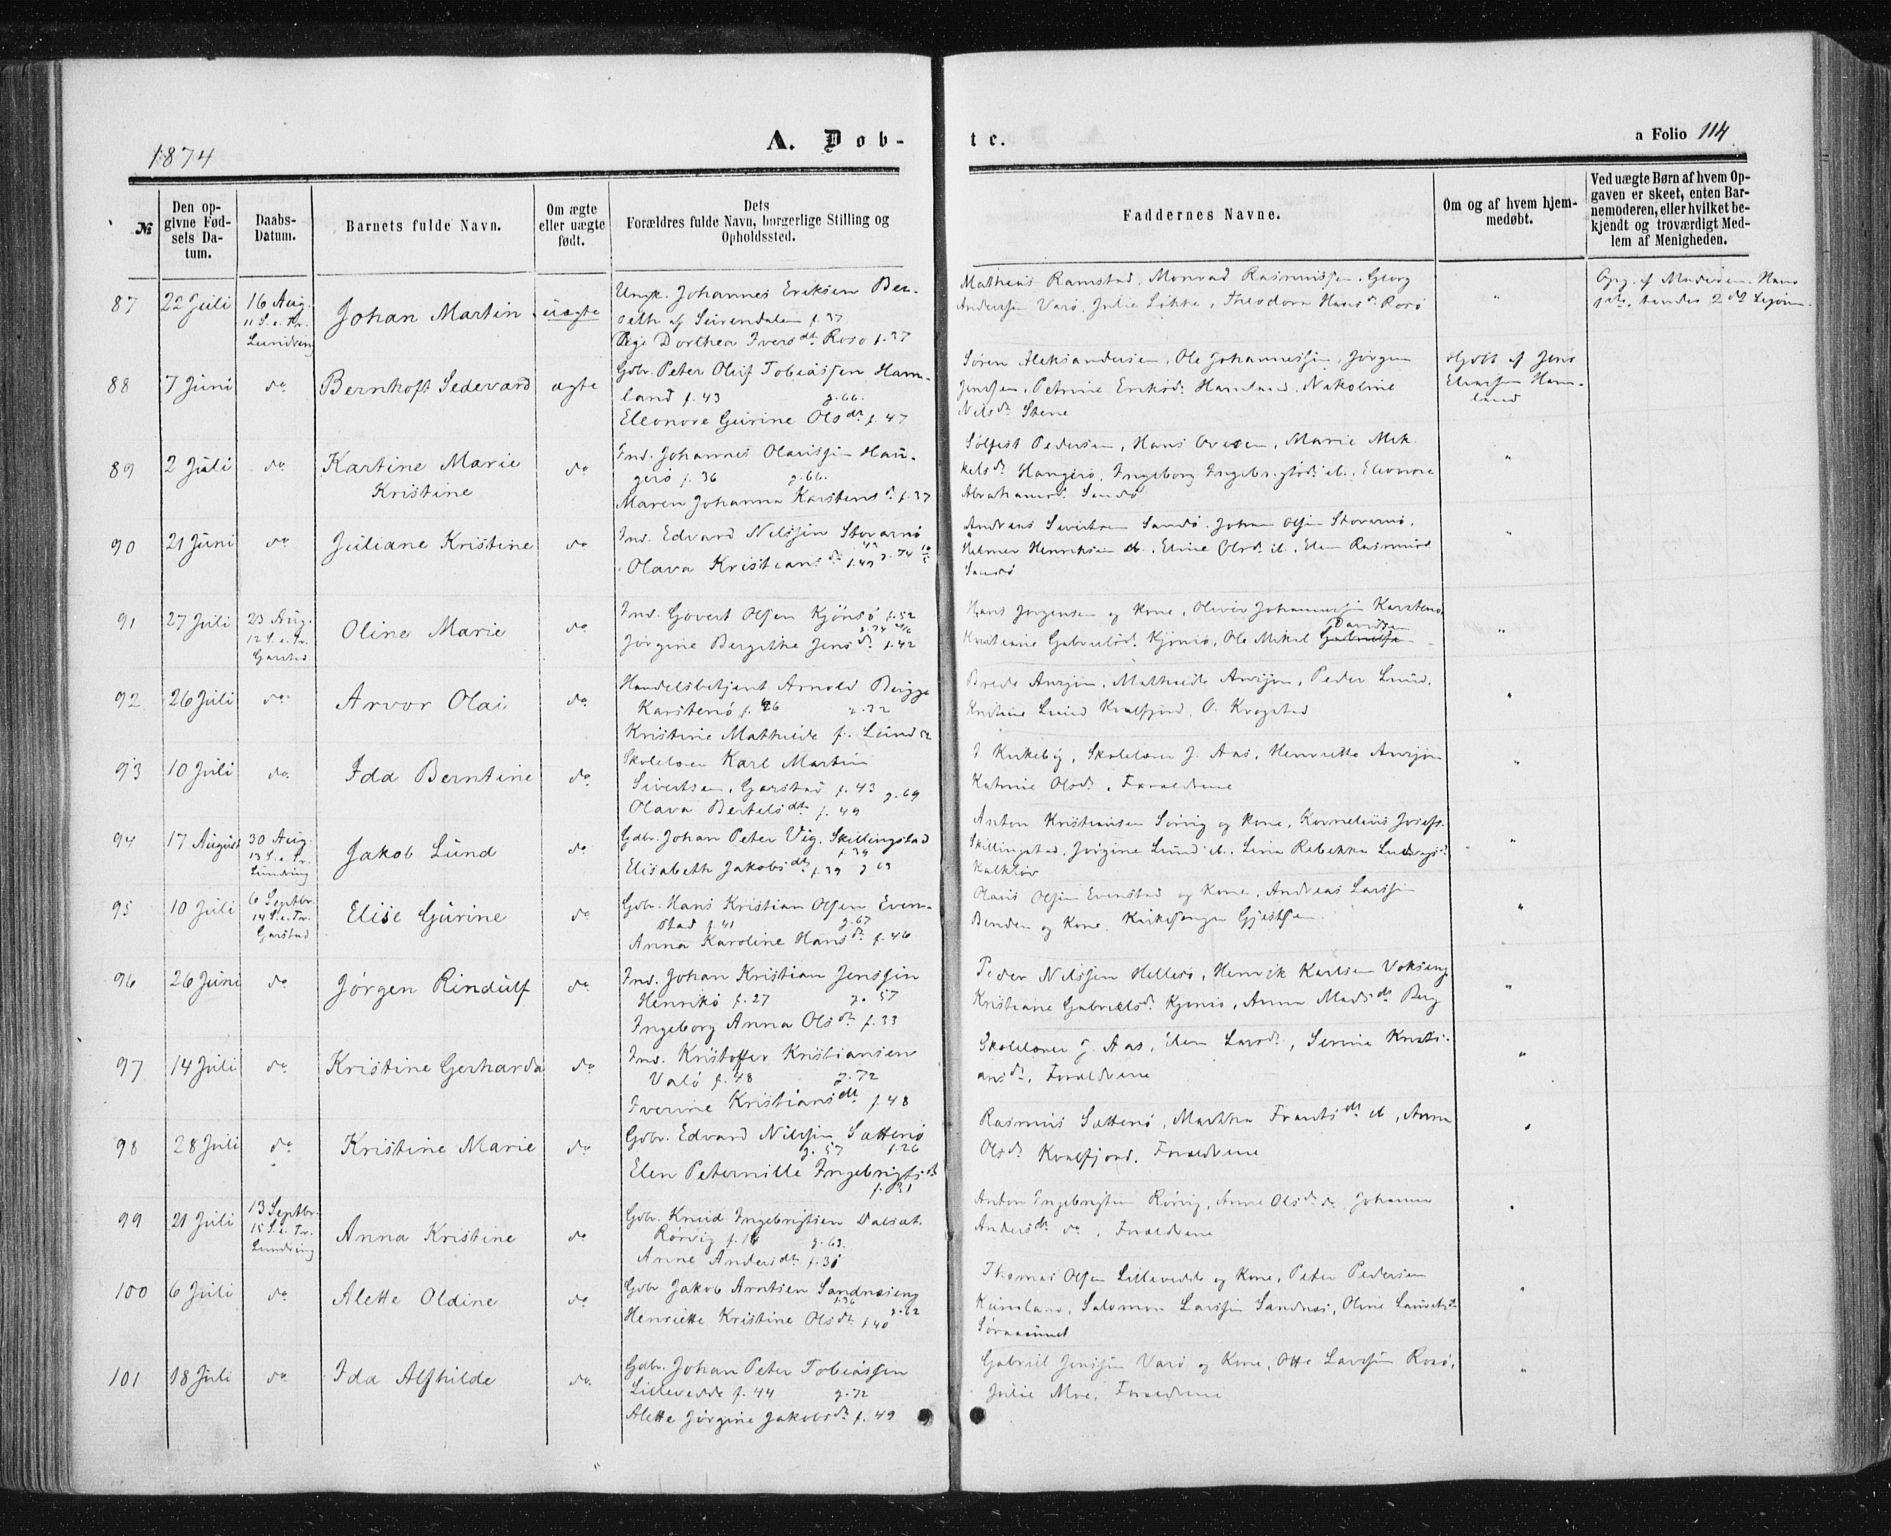 1874
A. Døb-
te.
a Folio 114
№
Den opgivne Fødsels Datum.
Daabs-Datum.
Barnets fulde Navn.
Om ægte eller uægte født.
Dets Forældres fulde Navn, borgerlige Stilling og Opholdssted.
Faddernes Navne.
Om og af hvem hjemmedøbt.
Ved uægte Børn af hvem Opgaven er skeet, enten Barnemoderen, eller hvilket bekjendt og troværdigt Medlem af Menigheden.
87 22 Juli 16 Aug. 11 S. e. Tr. Lundring Johan Martin uægte
Ungk. Johannes Eriksen Ber-
seth af Seirendalen f. 37
Pige Dorthea Ivers dt Rosø f. 37
Mathæus Ramstad, Monrad Rasmussen, Georg
Andersen Varø, Julie Løkke, Theodora Hans dt Rosø
"
Opg. af Moderen. Hans
2d
88 7 Juni do Bernhoft Sedevard ægte
Gdbr. Peter Oluf Tobiassen Ham-
land f. 43 g. 66.
Eleonore Gurine Ols dt f. 47
Søren Aleksandersen, Ole Johannessen, Jørgen
Jenssen, Petrine Eriksd. Hamland, Nikoline
Nilsd. Stene
af Jens
Eliassen Ham-
land
89 2 Juli do Kartine Marie
Kristine do
Ind. Johannes Olaissen Hau-
gerø f. 36 g. 66.
Maren Johanna Karstens d. f. 37
Sølfest Pedersen, Hans Ovesen, Marie Mik-
kelsd. Haugerø, Ingeborg Ingebrigtsd. ib., Eleonore
Abrahamsd. Sandø
"
90 21 Juni do Juliane Kristine do
Ind. Edvard Nilssen Storarnø
Olava Kristians d. f. 49 g. 74
Andreas Sivertsen Sandø, Johan Olsen Storarnø,
Helmer Henriksen ib., Eline Olsd. ib., Elen Rasmusd.
Sandø
"
91 27 Juli 23 Aug. 12 S. e. Tr. Garstad Oline Marie do
Ind. Govert Olsen Kjønsø f. 52
Jørgine Bergithe Jens d. f. 42
Hans Jørgensen og Kone, Oliver Johannessen Karstenø
Davidsen
Kristiane Gabrielsd. Kjønsø, Ole Mikal Gabrielsen
"
92 26 Juli do Arvor Olai do
Handelsbetjent Arnold Brygge
Karstenø f. 46
Kristine Mathilde f. Lund
Brede Anzjøn, Mathilde Anzjøn, Peder Lund,
Kristine Lund Kvalfjord, O. Krogstad
"
93 10 Juli do Ida Berntine do
Skolelærer Karl Martin
Sivertsen, Garstad f. 43 g. 69
Olava Bertels dt f. 49
J Kirkeby, Skolelærer J. Aas, Henriette Anzjøn
Katrine Olsd., Forældrene
"
94 17 August 30 Aug. 13 S. e. Tr. Lundring Jakob Lund do
Gdbr. Johan Peter Vig, Skillingstad
f. 34
Elisabeth Jakobs dt f. 39 g 63
Anton Kristiansen Sørvig og Kone, Kornelius Josefs.
Skillingstad, Jørgine Lund ib., Lina Rebekka Ludvigsd.
Kalkløv
"
95 10 Juli 6 Septbr. 14 S. e. Tr. Garstad Elise Gurine do
Gdbr. Hans Kristian Olsen Even-
stad f. 41 g. 67
Anna Karoline Hans d. f. 46
Olaus Olsen Evenstad og Kone, Andreas Larssen
Benden og Kone, Kirkesanger Gjestsen
"
96 26 Juni do Jørgen Rindulf do
Ind. Johan Kristian Jenssen
Henrikø f. 27 g. 57
Ingeborg Anna Ols d. f. 33
Peder Nilssen Hellesø, Henrik Karlsen Vokseng
Kristiane Gabriels d. Kjønsø, Anna Mads dt Berg
"
97 14 Juli do Kristine Gerharda do
Ind. Kristoffer Kristiansen
Valø f. 48 g. 72
Iverine Kristians dt f. 48
Skolelærer J. Aas, Elen Larsd., Serine Kristi-
ansd., Forældrene
"
98 28 Juli do Kristine Marie do
Gdbr. Edvard Nilssen Sætternø
g. 57 f. 26
Elen Peternille Ingebrigts dt
f. 31
Rasmus Sætternø, Markha Frants dt ib, Anna
Ols d. Kvalfjord, Forældrene
"
99 21 Juli 13 Septbr. 15 S. e. Tr. Lundring Anna Kristine do
Gdbr. Knud Ingebrigtsen Dalsæt.
Rørvig g. 63.
Anne Anders dt
Anton Ingebrigtsen Rørvig, Anne Ols d. do, Johanna
Anders dt do, Forældrene
"
100 6 Juli do Alette Oldine do
Gdbr Jakob Arntsen Sandnæseng
f. 36
Henriette Kristine Ols d. f. 40 g. 62
Thomas Olsen Lillevedde og Kone, Peter Pedersen
Kvinland, Salomon Larssen Sandnæs, Oline Lauritsdt
Sørnæsundet
"
101 18 Juli do Ida Alfhilde do
Gdbr. Johan Peter Tobiassen
Lillevedde f. 44 g. 72
Alette Jørgine Jakobs d. f. 49
Gabriel Jenssen Varø og Kone, Otte Larssen Rosø,
Julie Moe, Forældrene
"